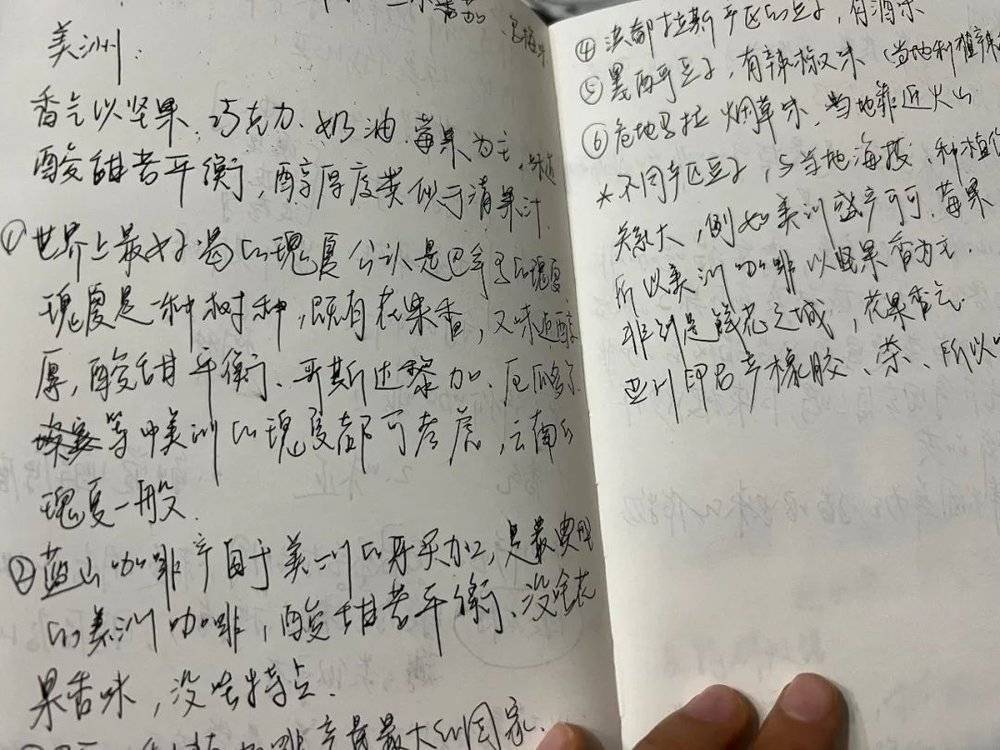 美洲:
香气以坚果、巧克力、奶油、莓果为主,
酸甜苦平衡,醇厚度类似于清果汁
① 世界上最好喝的瑰夏公认是巴拿马的瑰夏,
瑰夏是一种树种,既有花果香,又味道醇
厚,酸甜平衡、哥斯达黎加、厄瓜多尔
等中美洲的瑰夏都可考虑,云南的
瑰夏一般.
② 蓝山咖啡产自于美洲的牙买加,是最典型
的美洲咖啡,酸甜苦平衡、没啥花
果香味,没啥特点.
咖啡产量最大的国家.
④ 洪都拉斯产区的豆子,有酒味
⑤ 墨西哥豆子,有辣椒味(当地种植辣
⑥ 危地马拉 烟草味,当地靠近火山
*不同产区豆子,与当地海拔、种植
关系大,例如美洲盛产可可、莓果
所以美洲咖啡以坚果香为主.
非洲是鲜花之城,花果香气.
亚洲印尼产橡胶、茶、所以